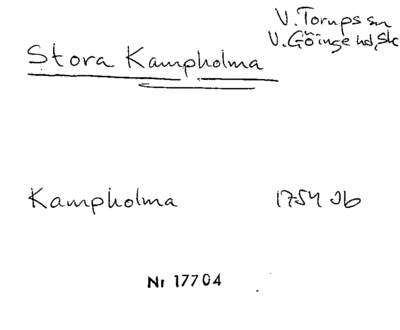 V. Torups sn
V. Göinge hd, Sk
Stora Kampholma
Kampholma 1754 Jb
Nr 17704